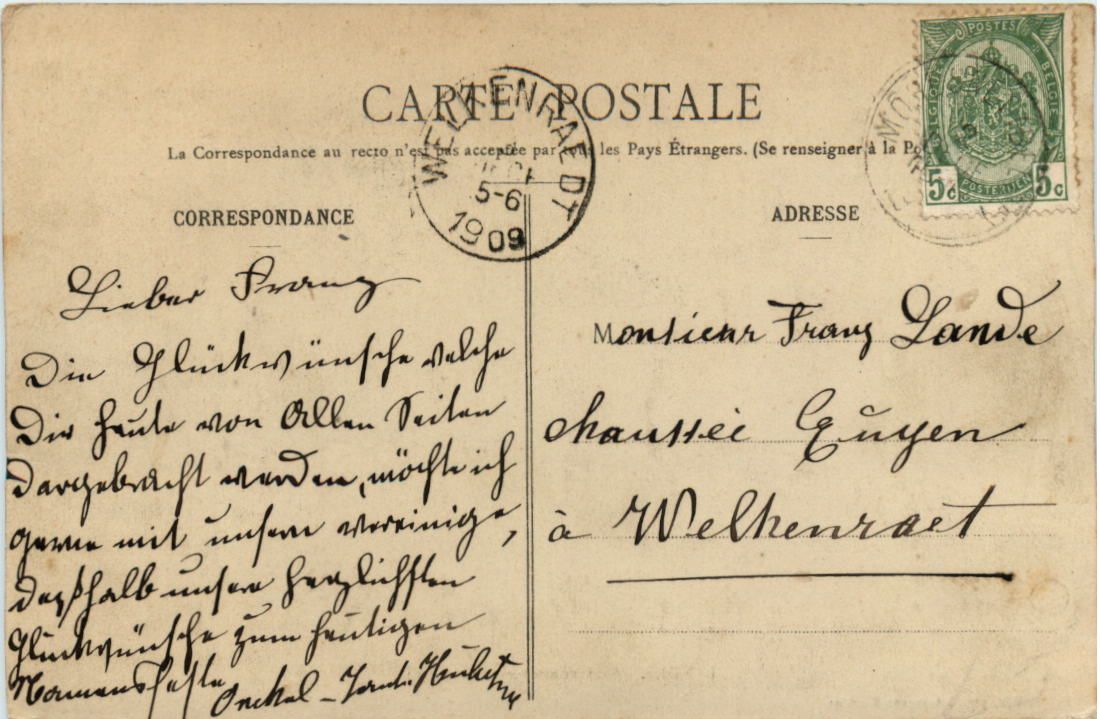 CARTE POSTALE
La Correspondance au recto n'est pas acceptée par tous les Pays Étrangers. (Se renseigner à la Po
WELKENRAEDT
5-6
1909
POSTES
BELGIQUE
BELGIË
POSTERIJEN
5c 5c
CORRESPONDANCE
Lieber Franz
Die Glückwünsche welche
Dir heute von Allen Seiten
dargebracht werden, möchte ich
gerne mit unsern vereinige,
deßhalb unsere herzlichsten
Glückwünsche zum heutigen
Namensfeste
Onckel - Tante Hubert
ADRESSE
Monsieur Franz Lande
chaussée Eupen
à Welkenraet